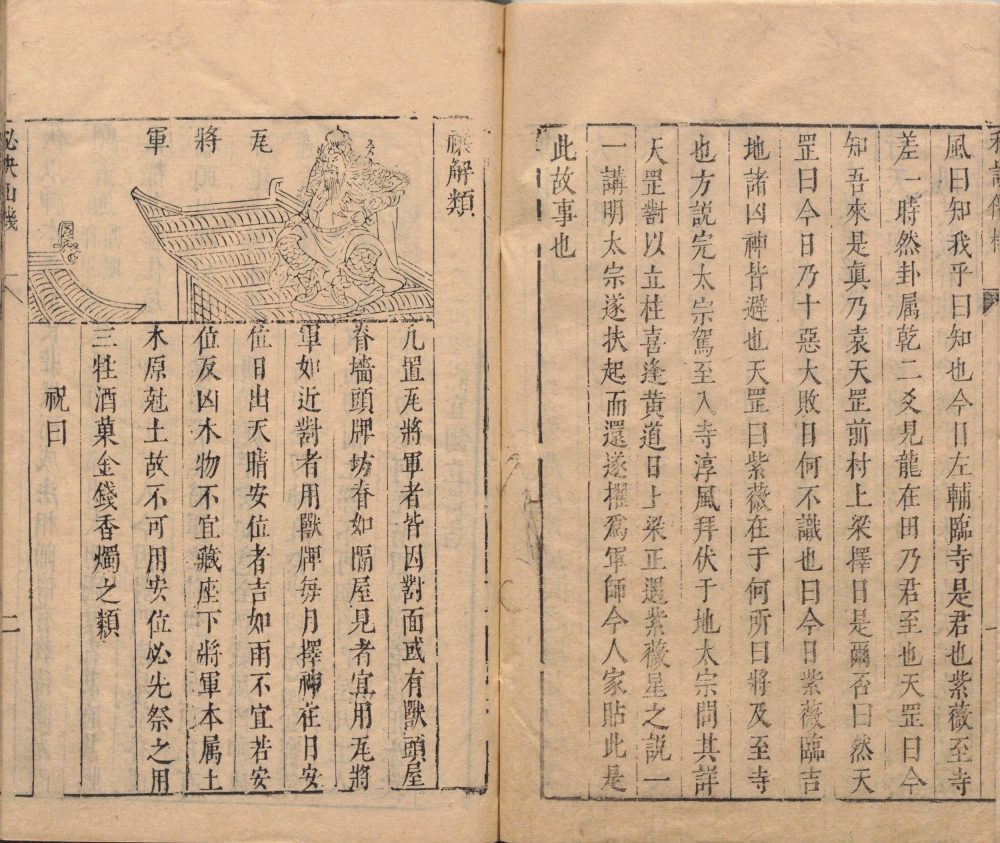 風曰知我乎曰知也今日左輔臨寺是君也紫薇至寺
差一時然卦属乾二爻見龍在田乃君至也天罡曰今
知吾來是真乃袁天罡前村上梁擇日是爾否曰然天
罡曰今日乃十惡大敗日何不識也曰今日紫薇臨吉
地諸凶神皆避也天罡曰紫薇在于何所曰將及至寺
也方說完太宗駕至入寺淳風拜伏于地太宗問其詳
天罡對以立柱喜逢黄道日上梁正遇紫薇星之說一
一講明太宗遂扶起而還遂擢爲軍師今人家貼此是
此故事也
禳解類
瓦
將
軍
凡置瓦將軍者皆因對面或有獸頭屋
脊墻頭牌坊脊如隔屋見者宜用瓦將
軍如近對者用獸牌每月擇神在日安
位日出天晴安位者吉如雨不宜若安
位反凶木物不宜藏座下將軍本属土
木原尅土故不可用安位必先祭之用
三牲酒菓金錢香燭之類
祝曰
二